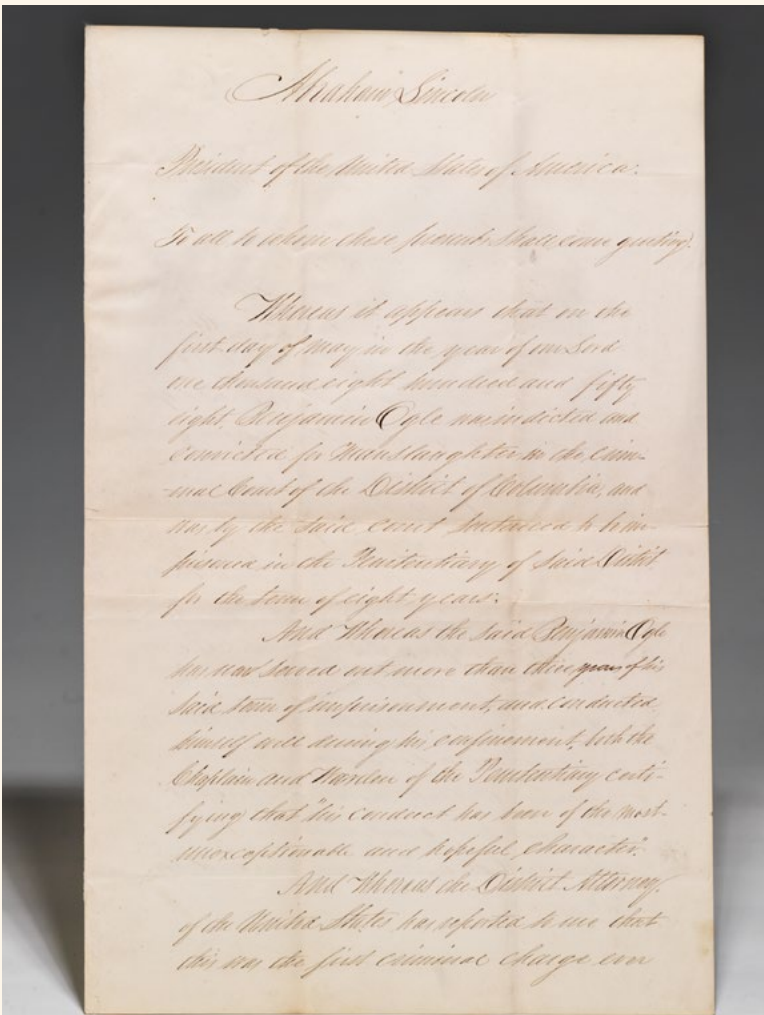 Abraham Lincoln
President of the United States of America.
To all to whom these presents shall come greeting.
Whereas it appears that on the
first day of May in the year of our Lord
one thousand eight hundred and fifty
eight, Benjamin Ogle was indicted and
convicted for Manslaughter, in the Crim-
-inal Court of the District of Columbia, and
was by the said court sentenced to be im-
prisoned in the Penitentiary of said District
for the term of eight years.
And Whereas the said Benjamin Ogle
has now served out more than three years of his
said term of imprisonment, and conducted
himself well during his confinement, both the
Chaplain and Warden of the Penitentiary certi-
fying that "his conduct has been of the most
unexceptionable and hopeful character".
And Whereas the District Attorney
of the United States has reported to me that
this was the first criminal charge ever